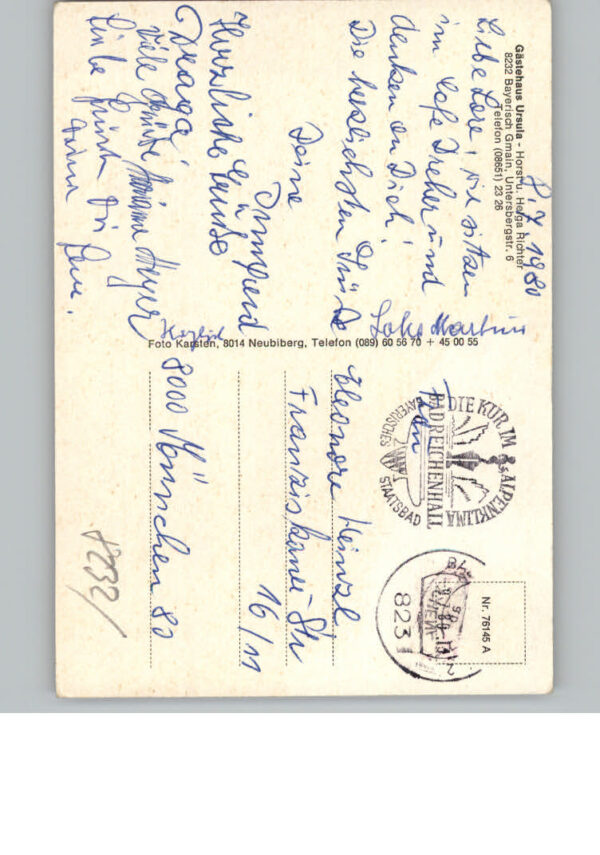 Gästehaus Ursula - Horst u. Helga Richter
8232 Bayerisch Gmain, Untersbergstr. 6
Telefon (08651) 23 26
8.7.1980
Liebe Lore! Wir sitzen
im Cafe Dreher und
denken an Dich!
Die herzlichsten Grüße
Deine
Herzliche Grüße
Draga
Viele Grüße Meyer
Liebe Grüße Dir
Foto Karsten, 8014 Neubiberg, Telefon (089) 60 56 70 + 45 00 55
DIE KUR IM ALPENKLIMA
BAD REICHENHALL
BAYERISCHES STAATSBAD
823
Nr. 76145 A
Frau
Eleonore Heinzl
Franziskaner-Str
16/11
8000 München 80
8232/